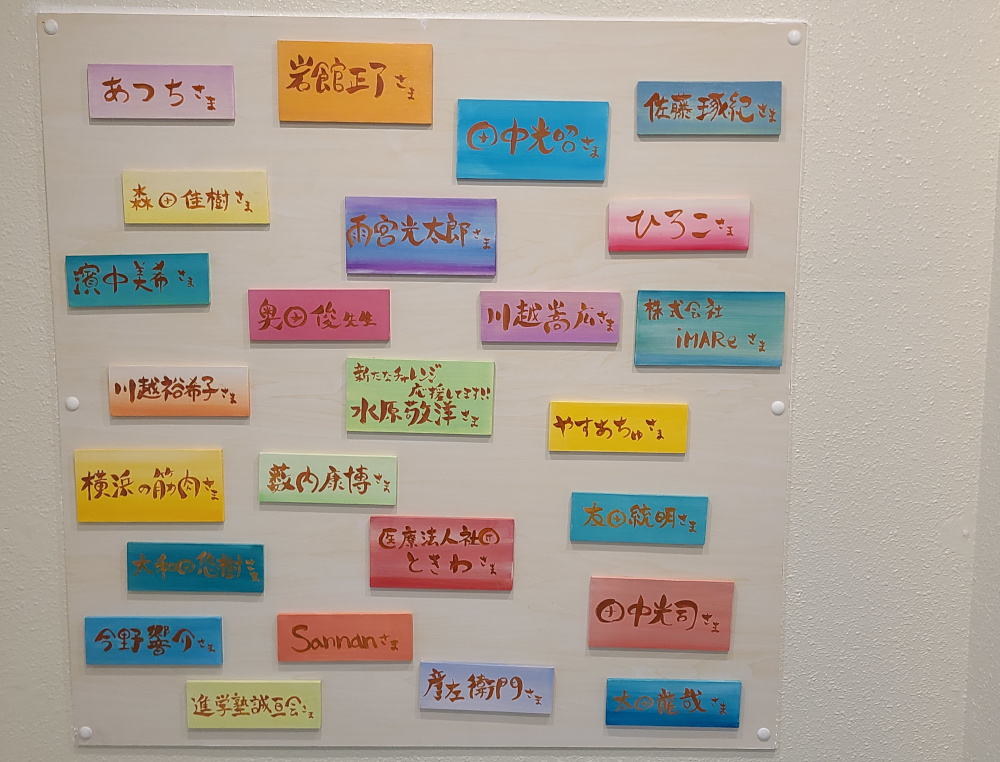 あつちさま
岩館正了さま
田中光昭さま
佐藤琢紀さま
森田佳樹さま
雨宮光太郎さま
ひろこさま
濱中美希さま
奥田俊先生
川越嵩広さま
株式会社
iMARe さま
川越裕希子さま
新たなチャレンジ
応援してます!!
水原敬洋さま
やすあちゅさま
横浜の筋肉さま
藪内康博さま
友田統明さま
医療法人社団
ときわさま
大和田悠樹さま
田中光司さま
今野響介さま
Sannanさま
彦左衛門さま
進学塾誠亘会さま
太田龍哉さま